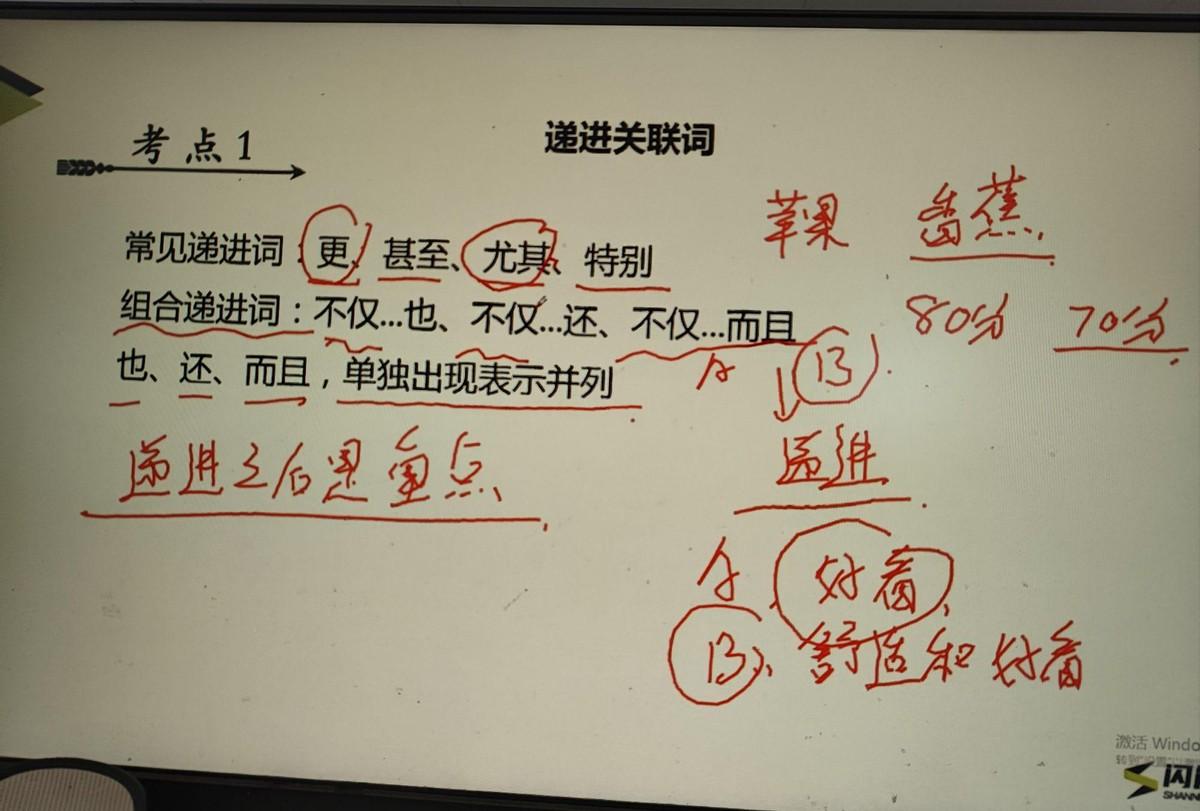 考点1
递进关联词
常见递进词：更、甚至、尤其、特别
苹果 香蕉
组合递进词：不仅...也、不仅...还、不仅...而且
80分 70分
也、还、而且，单独出现表示并列
A B
递进之后是重点
递进
A、好看
B、舒适和好看
激活 Windo
闪
SHANN